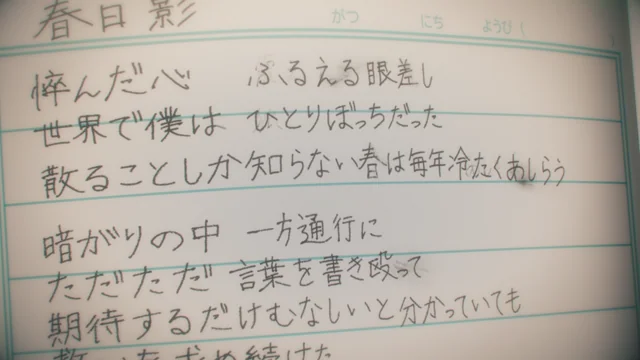 春日影
がつ にち ようび(
悴んだ心 ふるえる眼差し
世界で僕は ひとりぼっちだった
散ることしか知らない春は毎年冷たくあしらう
暗がりの中 一方通行に
ただただ 言葉を書き殴って
期待するだけむなしいと分かっていても
救いを求め続けた